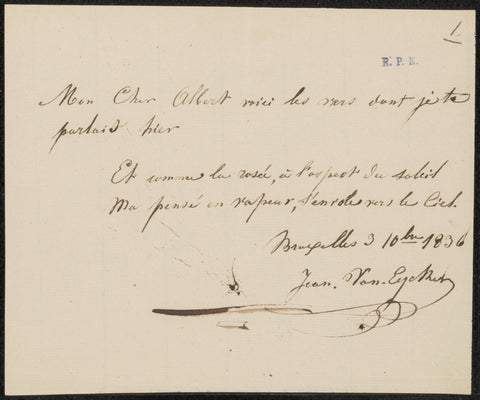 1
R. P. K.
Mon Cher Albert voici les vers dont je te
parlais hier
Et comme la rosée, à l'aspect du soleil
Ma pensé en vapeur, s'envole vers le Ciel.
Bruxelles 3 10bre 1836
Jean. Van-Eyckhen